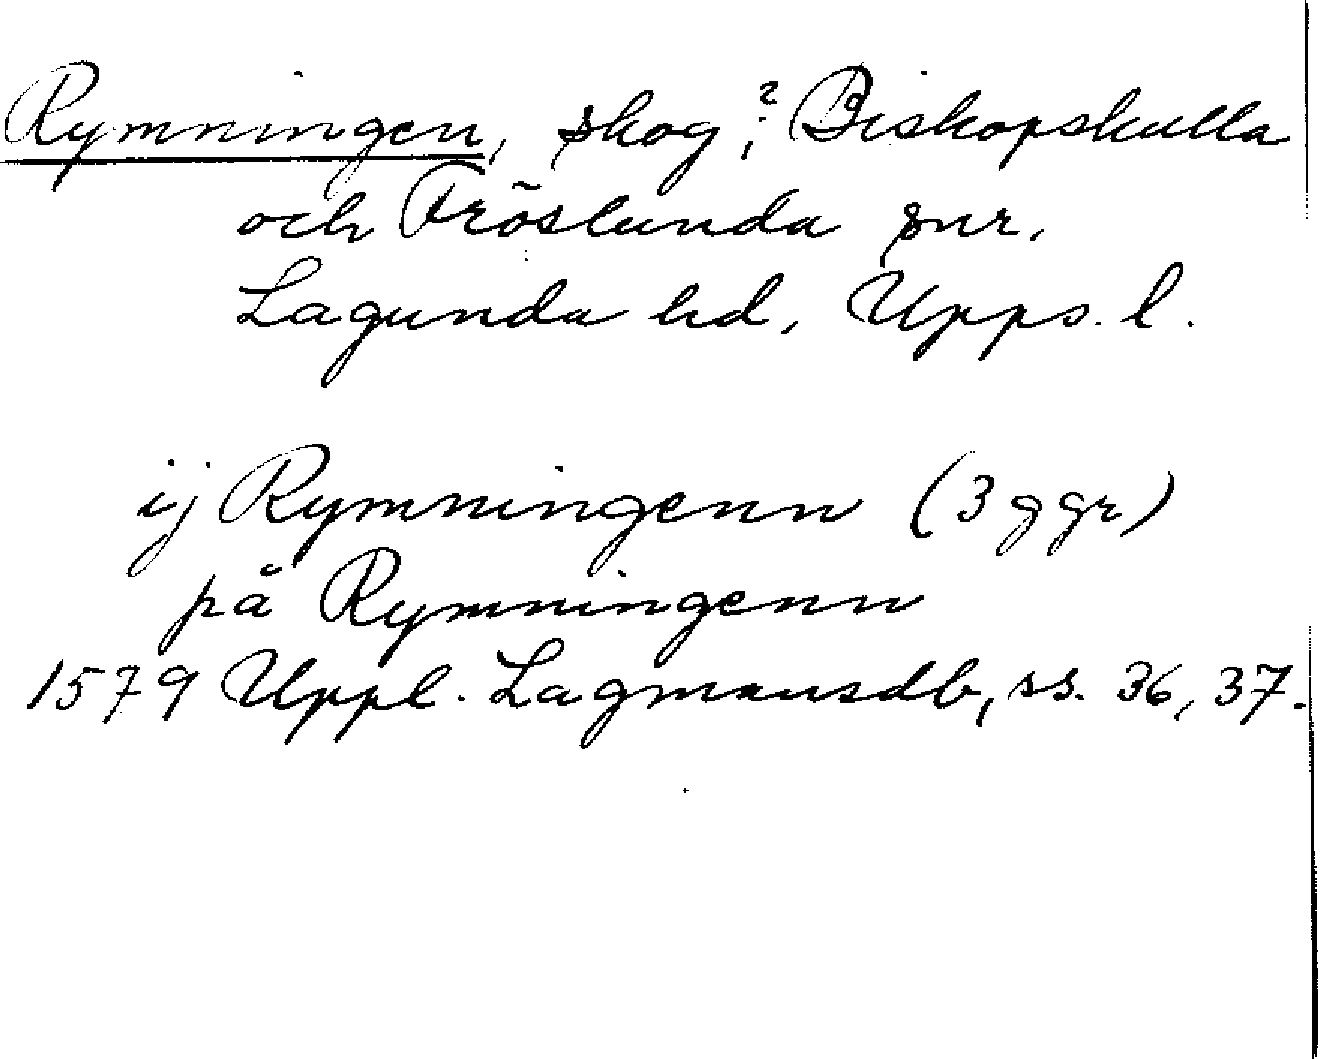 Rymningen, skog?, Biskopskulla
och Fröslunda snr,
Lagunda hd, Upps. l.
ij Rymningenn (3 ggr)
på Rymningenn
1579 Uppl. Lagmansdb, ss. 36, 37.